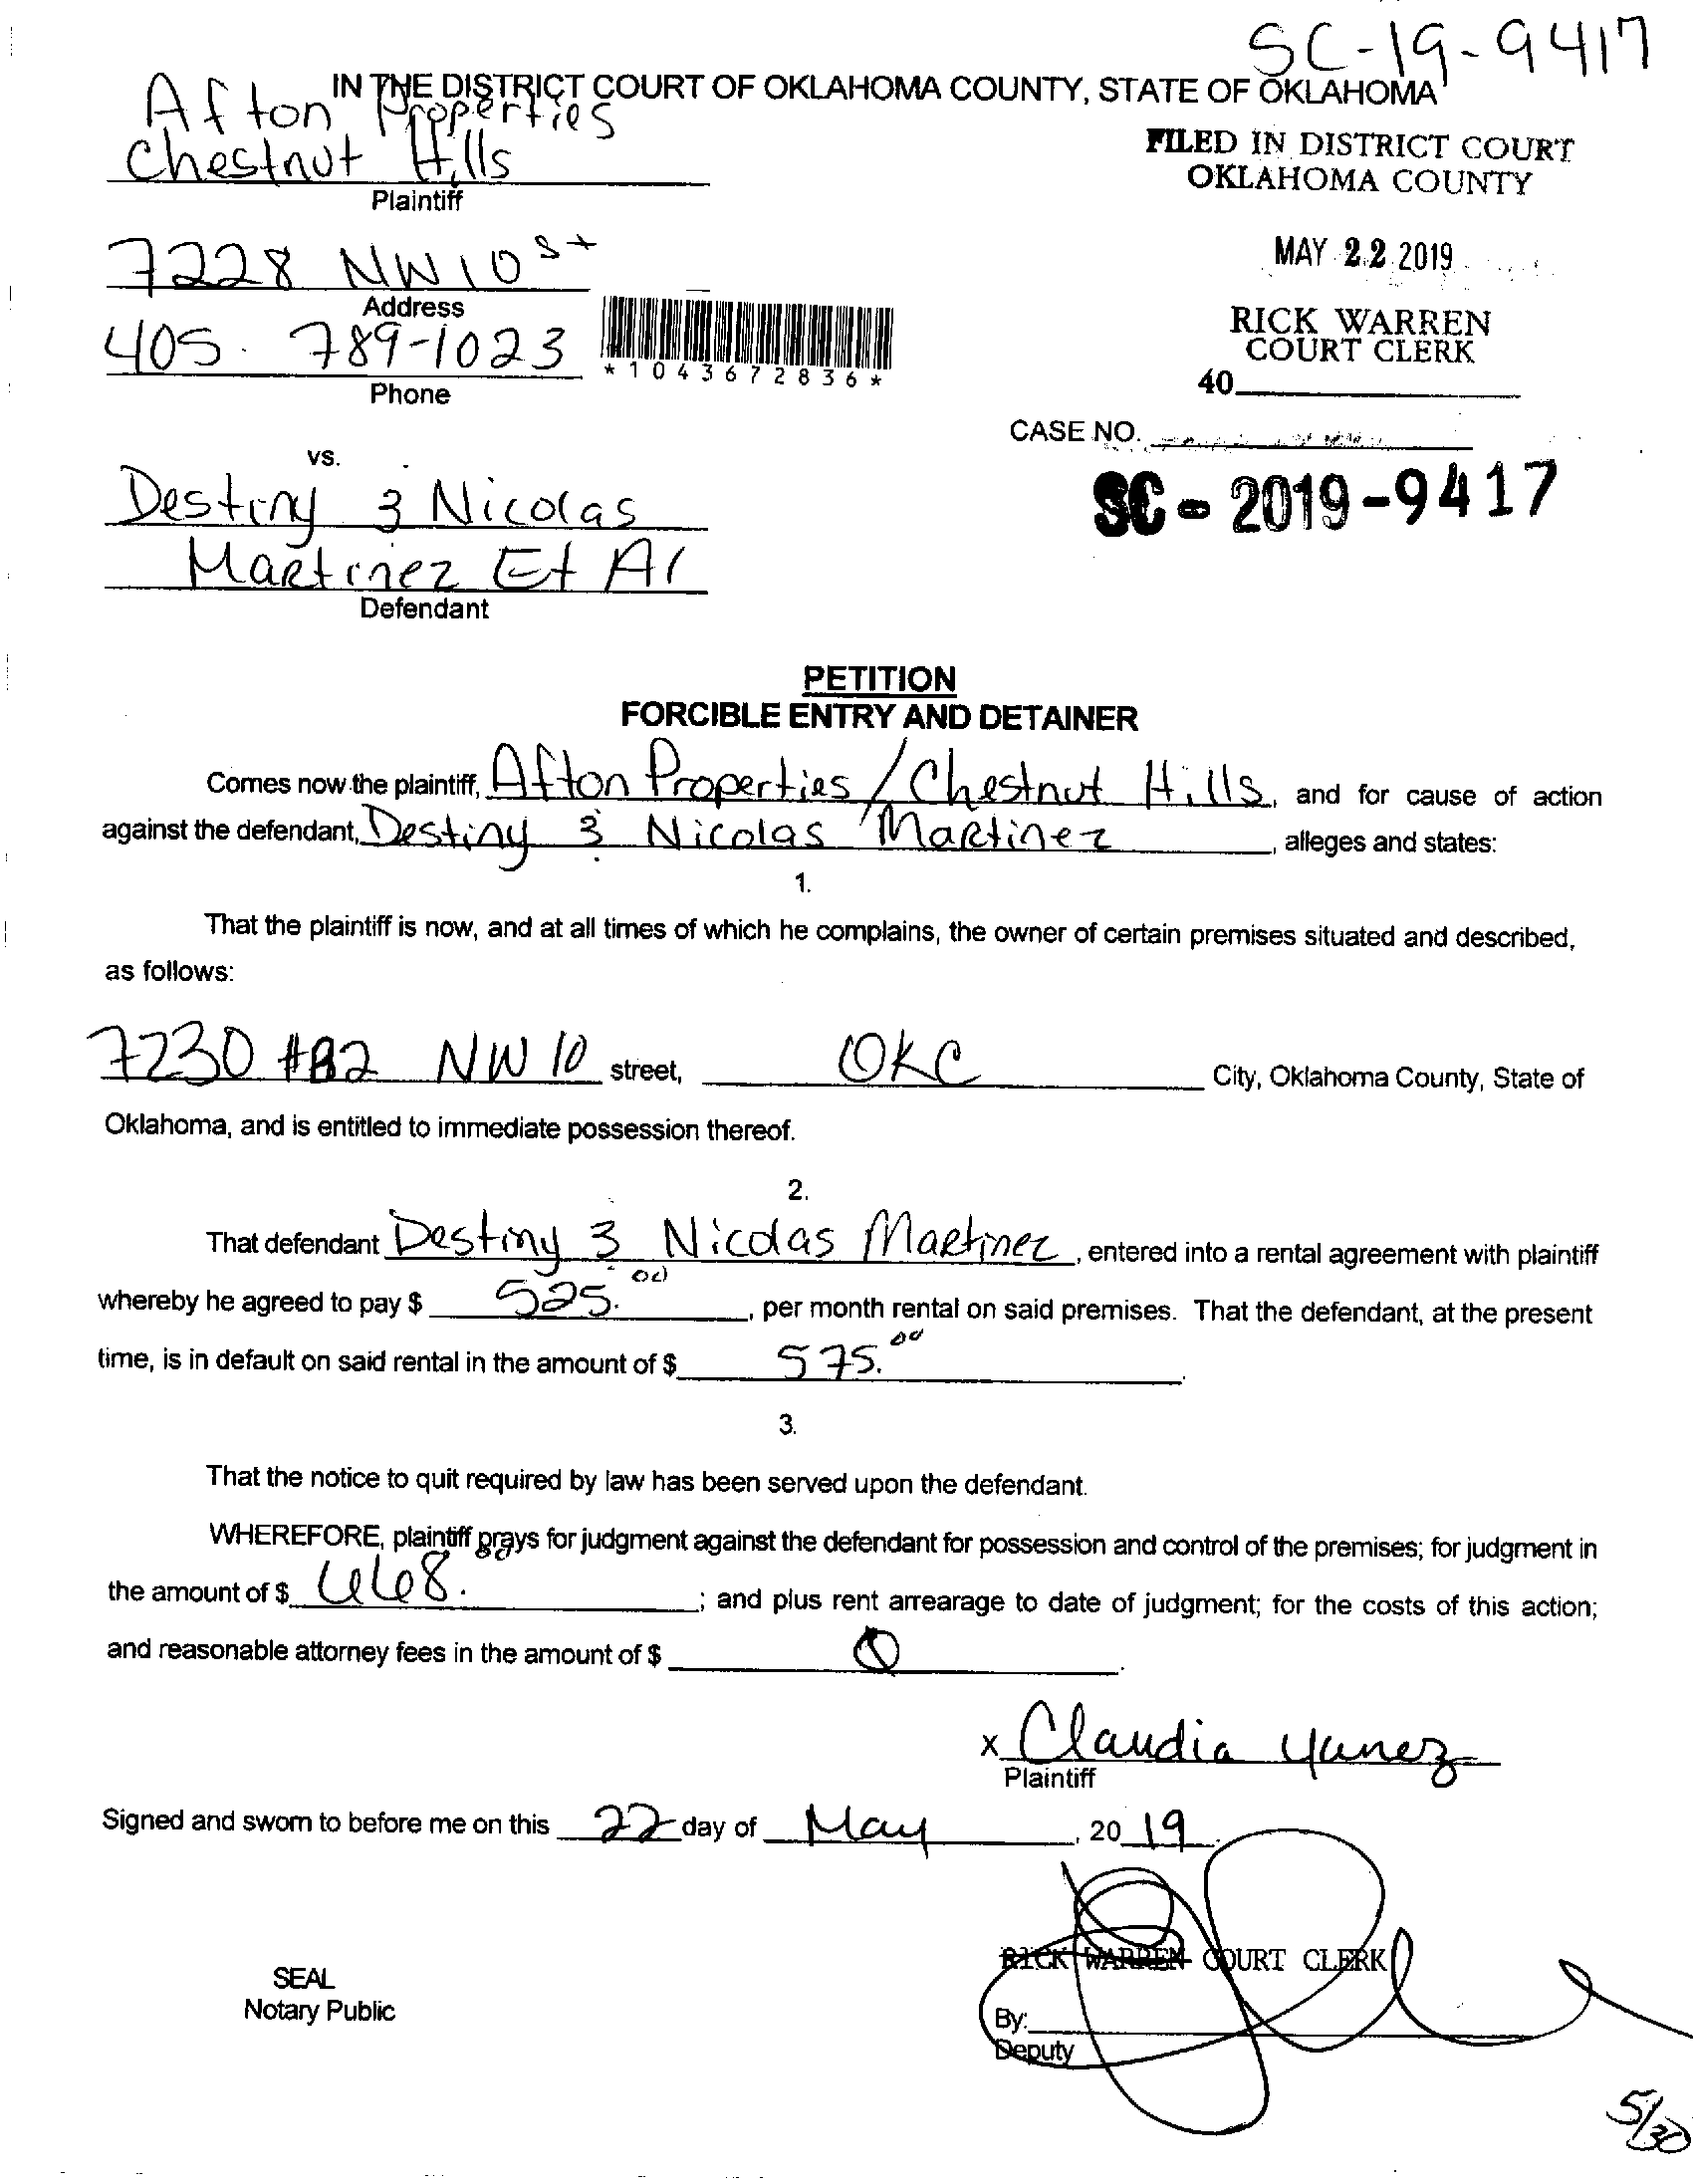 SC-19-9417
IN THE DISTRICT COURT OF OKLAHOMA COUNTY, STATE OF OKLAHOMA
Afton Properties
Chestnut Hills
Plaintiff
FILED IN DISTRICT COURT
OKLAHOMA COUNTY
MAY 22 2019
RICK WARREN
COURT CLERK
40
7228 NW 10 st
Address
405. 789-1023
Phone
*1043672836*
CASE NO.
SC-2019-9417
vs.
Destiny & Nicolas
Martinez Et Al
Defendant
PETITION
FORCIBLE ENTRY AND DETAINER
Comes now the plaintiff, Afton Properties / Chestnut Hills, and for cause of action
against the defendant, Destiny & Nicolas Martinez, alleges and states:
1.
That the plaintiff is now, and at all times of which he complains, the owner of certain premises situated and described,
as follows:
7230 #B2 NW 10 street, OKC City, Oklahoma County, State of
Oklahoma, and is entitled to immediate possession thereof.
2.
That defendant Destiny & Nicolas Martinez, entered into a rental agreement with plaintiff
whereby he agreed to pay $ 525.00, per month rental on said premises. That the defendant, at the present
time, is in default on said rental in the amount of $ 575.00.
3.
That the notice to quit required by law has been served upon the defendant.
WHEREFORE, plaintiff prays for judgment against the defendant for possession and control of the premises; for judgment in
the amount of $ 668.00; and plus rent arrearage to date of judgment; for the costs of this action;
and reasonable attorney fees in the amount of $ 0.
x Claudia Yanez
Plaintiff
Signed and sworn to before me on this 22 day of May, 20 19.
RICK WARREN COURT CLERK
SEAL
Notary Public
By:
Deputy
5/30